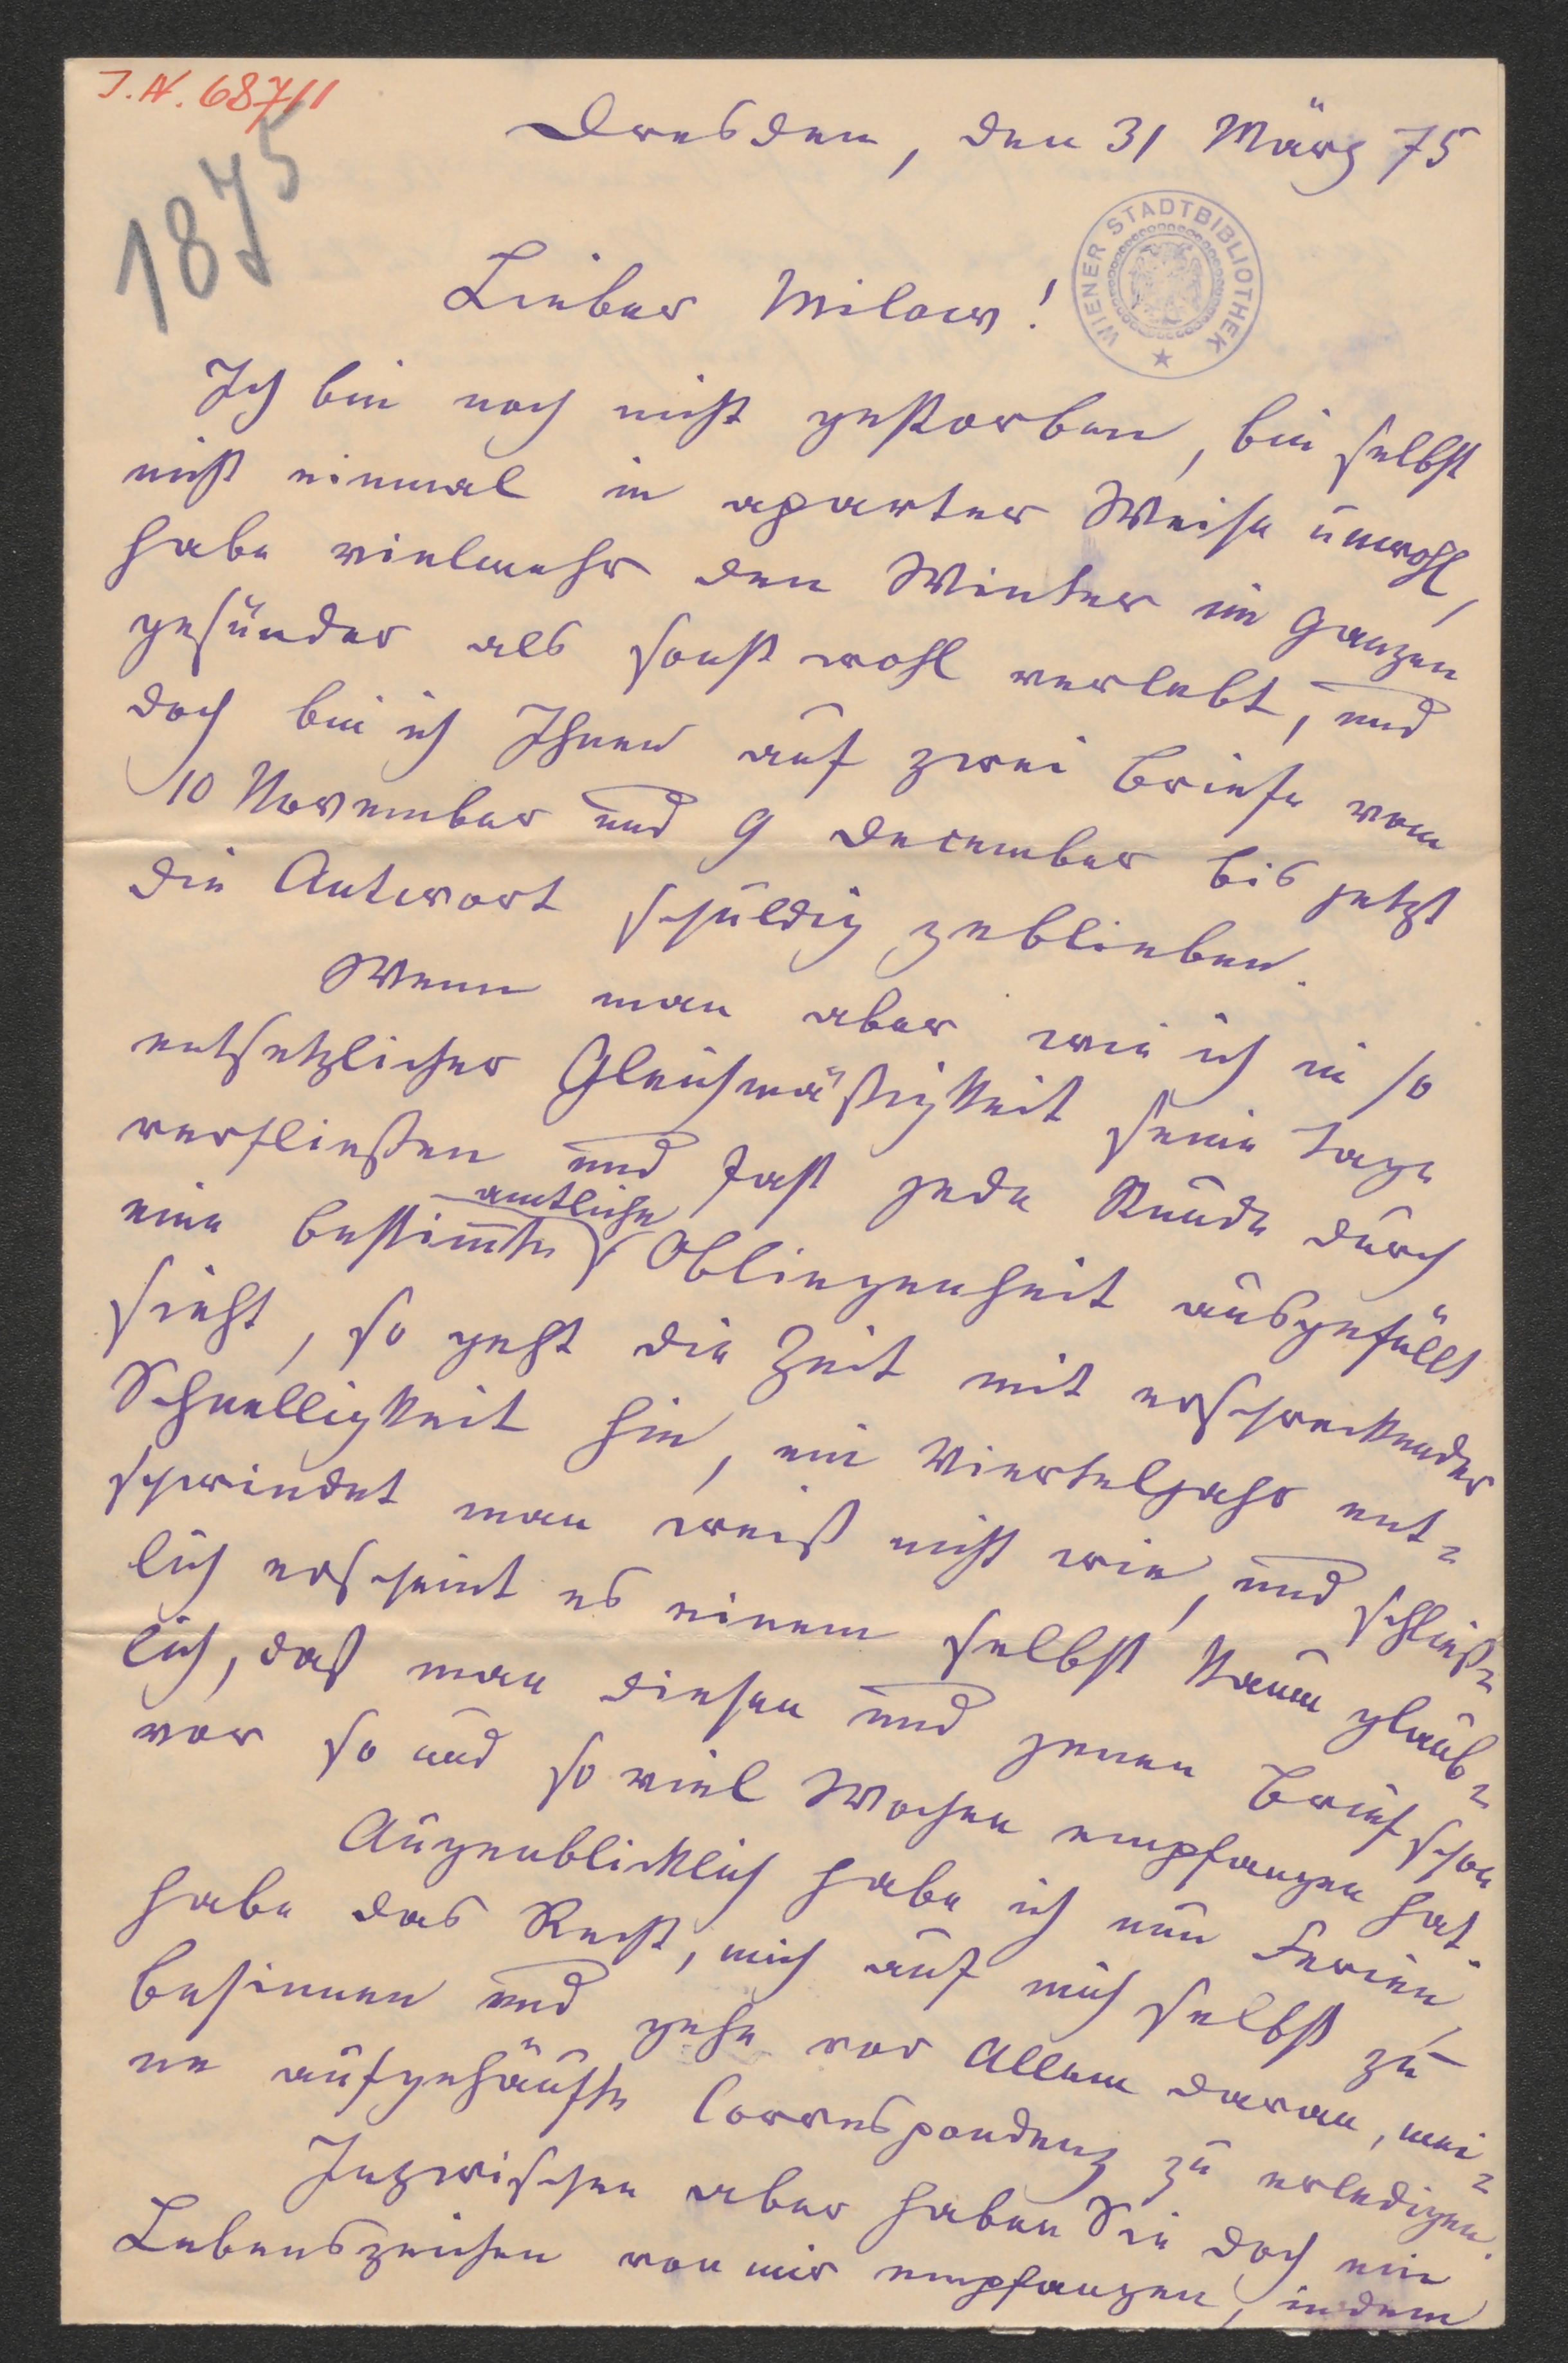 J.N. 68711
1875
Dresden, den 31 März 75
WIENER STADTBIBLIOTHEK
Lieber Milow!
Ich bin noch nicht gestorben, bin selbst
nicht einmal in aparter Weise unwohl,
habe vielmehr den Winter im ganzen
gesünder als sonst wohl verlebt, und
doch bin ich Ihnen auf zwei Briefe vom
10 November und 9 December bis jetzt
die Antwort schuldig geblieben.
Wenn man aber wie ich in so
entsetzlicher Gleichmäßigkeit seine Tage
verfließen und fast jede Stunde durch
amtliche
eine bestimte Obliegenheit ausgefüllt
sieht, so geht die Zeit mit erschreckender
Schnelligkeit hin, ein Vierteljahr ent-
schwindet man weiß nicht wie, und schließ-
lich erscheint es einem selbst kaum glaub-
lich, daß man diesen und jenen Brief schon
vor so und so viel Wochen empfangen hat.
Augenblicklich habe ich nun Ferien,
habe das Recht, mich auf mich selbst zu
besinnen und gehe vor Allem daran, mei-
ne aufgehäufte Correspondenz zu erledigen.
Inzwischen aber haben Sie doch ein
Lebenszeichen von mir empfangen, indem